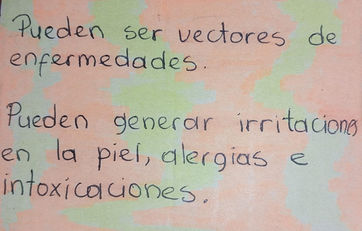 Pueden ser vectores de
enfermedades.
Pueden generar irritaciones
en la piel, alergias e
intoxicaciones.